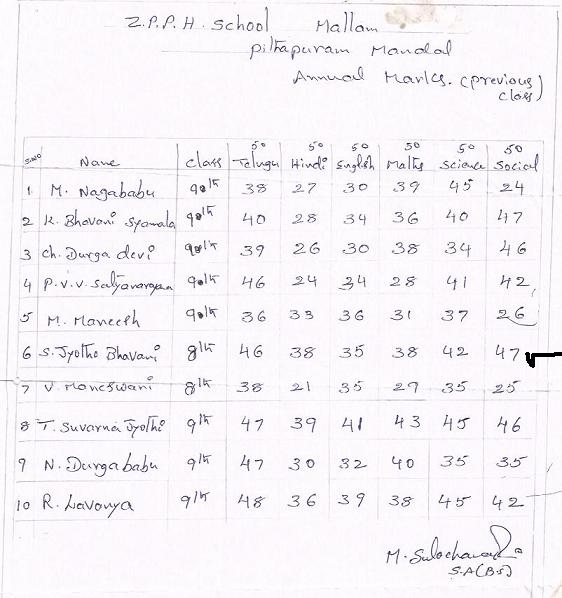 Z.P.P.H. School Mallam
Pithapuram Mandal
Annual Marks. (previous
class)
50 50 50 50 50 50
S.No Name class Telugu Hindi English Maths Science Social
1 M. Nagababu 9th 38 27 30 39 45 24
2 K. Bhavani Syamala 9th 40 28 34 36 40 47
3 Ch. Durga devi 9th 39 26 30 38 34 46
4 P.V.V. Satyanarayana 9th 46 24 34 28 41 42
5 M. Maneesh 9th 36 33 36 31 37 26
6 S. Jyothi Bhavani 8th 46 38 35 38 42 47
7 V. Maneswari 8th 38 21 35 29 35 25
8 T. Suvarna Jyothi 9th 47 39 41 43 45 46
9 N. Durgababu 9th 47 30 32 40 35 35
10 R. Lavanya 9th 48 36 39 38 45 42
M.
S.A (B.S)